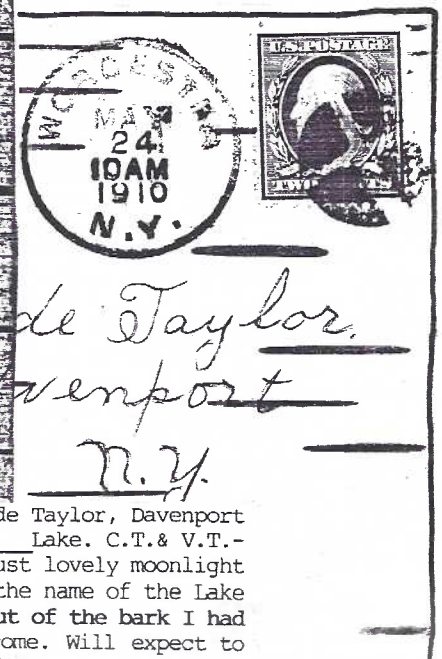 U.S. POSTAGE
WORCESTER
MAY
24
10AM
1910
N.Y.
TWO CENTS
de Taylor,
venport
N.Y.
de Taylor, Davenport
Lake. C.T.& V.T.-
ust lovely moonlight
the name of the Lake
ut of the bark I had
ome. Will expect to